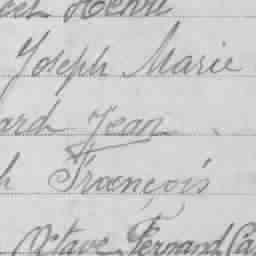 Henri
Joseph Marie
ard Jean
h François
Octave Fernand Ca